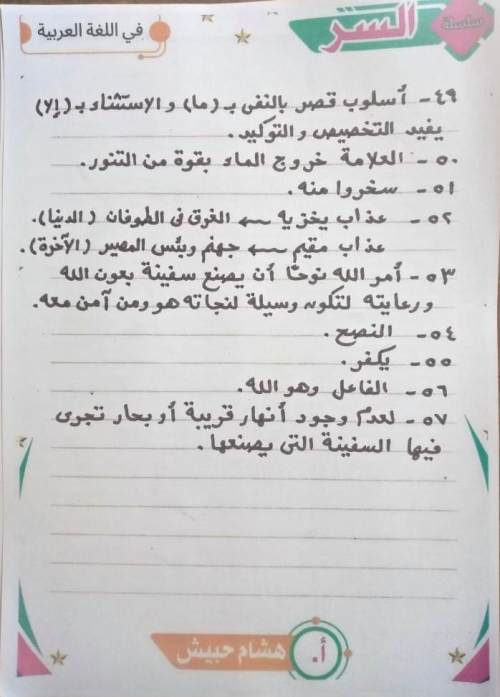 سلسلة
السر
في اللغة العربية
٤٩- أسلوب قصر بالنفى بـ (ما) و الإستثناء بـ (إلا)
يفيد التخصيص والتوكيد.
٥٠- العلامة خروج الماء بقوة من التنور.
٥١- سخروا منه.
٥٢- عذاب يخزيه ← الغرق فى الطوفان (الدنيا).
عذاب مقيم ← جهنم وبئس المصير (الآخرة).
٥٣- أمر الله نوحًا أن يصنع سفينة بعون الله
ورعايته لتكون وسيلة لنجاته هو ومن آمن معه.
٥٤- النصح.
٥٥- يكفر.
٥٦- الفاعل وهو الله.
٥٧- لعدم وجود أنهار قريبة أو بحار تجرى
فيها السفينة التى يصنعها.
أ. هشام حبيش